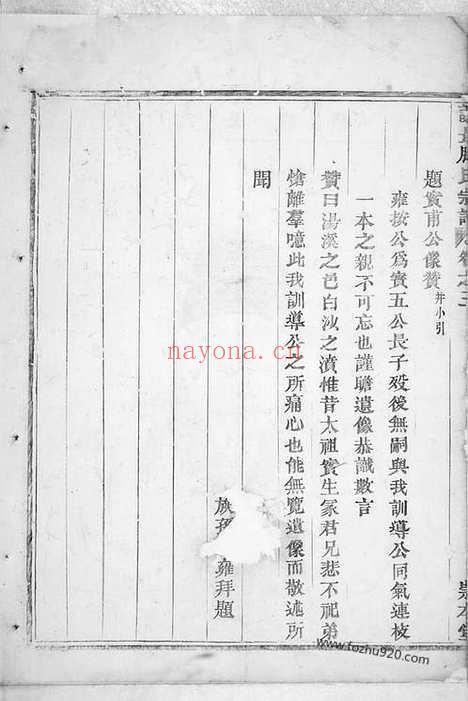 氏宗譜 卷之三
題實甫公像贊 并小引
雍按公爲實五公長子歿後無嗣與我訓導公同氣連枝
一本之親不可忘也謹瞻遺像恭識數言
贊曰湯溪之邑白沙之濆惟昔太祖實生冢君兄悲不祀弟
愴離羣噫此我訓導公之所痛心也能無覽遺像而敬述所
聞
族孫 雍拜題
nayona.cn
www.fozhu920.com